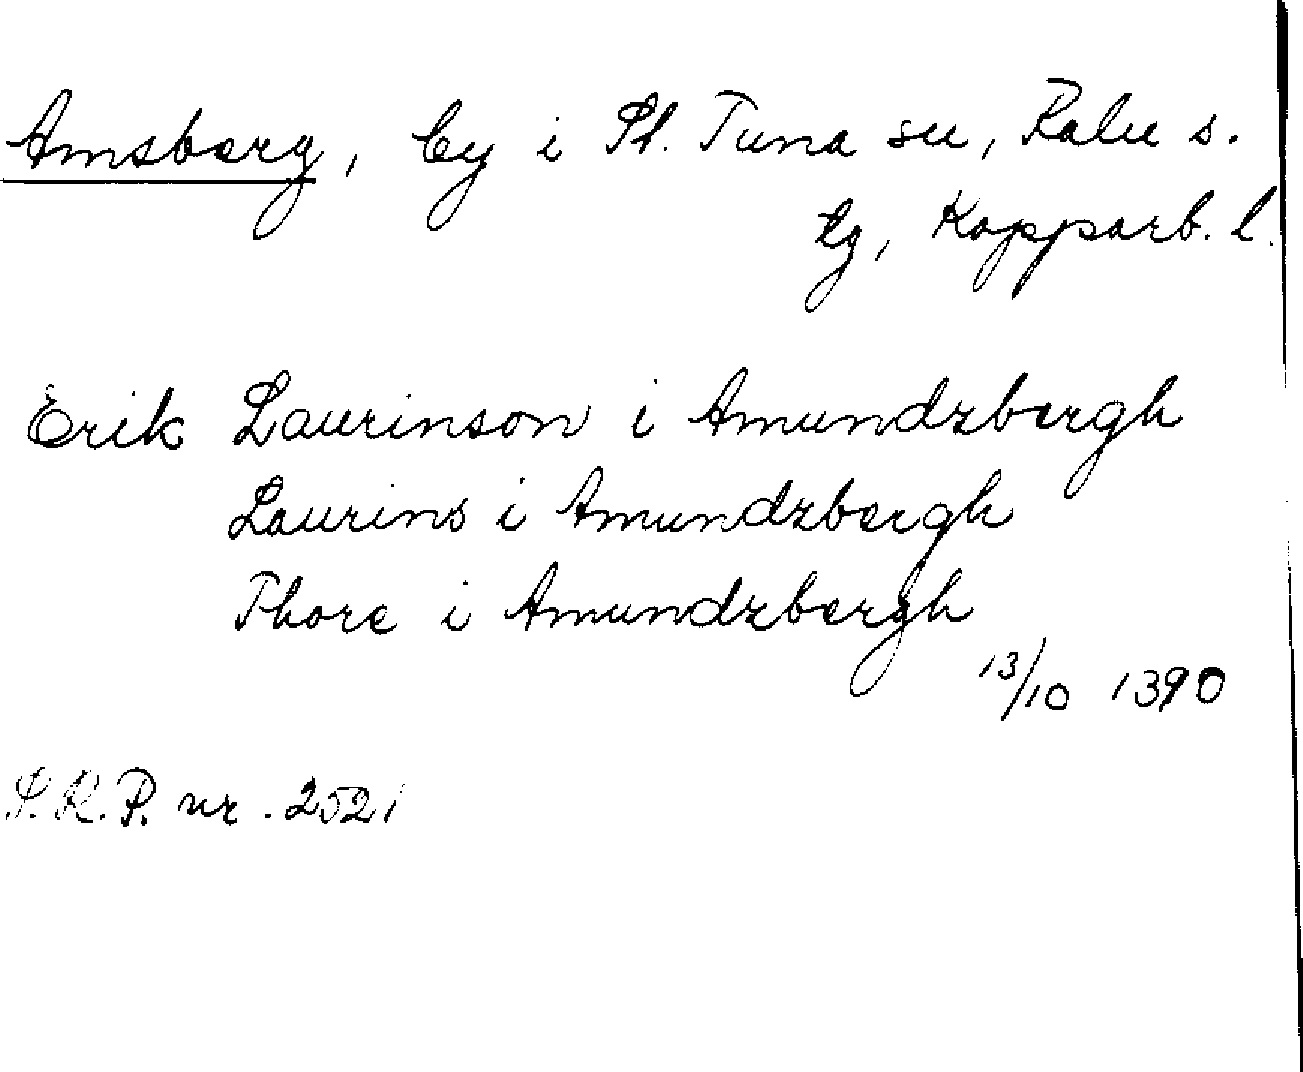 Amsberg, by i St. Tuna sn, Falu s.
tg, Kopparb. l.
Erik Laurinson i Amundzbergh
Laurins i Amundzbergh
Thore i Amundzbergh
13/10 1390
S.R.P. nr. 2521